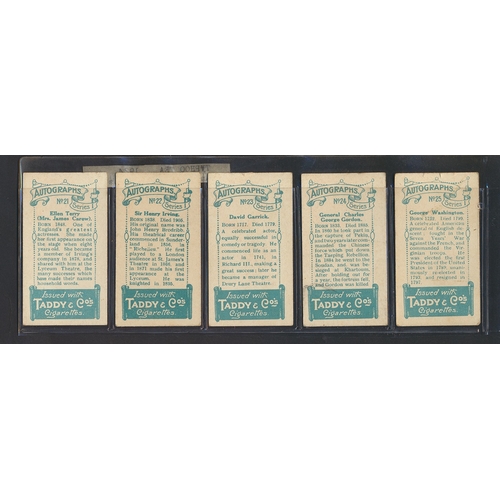 AUTOGRAPHS.
Series
Nº 21
Ellen Terry
(Mrs. James Carew).
BORN 1848. One of
England's greatest
actresses. She made
her first appearance on
the stage when eight
years old. She became
a member of Irving's
company in 1878, and
acted with him at the
Lyceum Theatre. Her
many successes which
have made her name a
household word.
Issued with
TADDY & Co's
Cigarettes.
AUTOGRAPHS.
Series
Nº 22
Sir Henry Irving.
BORN 1838. Died 1905.
His original name was
John Henry Brodribb.
His theatrical career
commenced in Sunder-
land in
"Richelieu." He first
played to a
London audience at
St. James's
Theatre in
1871 made his first
appearance at the
Lyceum. Was
knighted in 1895.
Issued with
TADDY & Co's
Cigarettes.
AUTOGRAPHS.
Series
Nº 23
David Garrick.
BORN 1717. Died 1779.
A celebrated actor,
equally successful in
comedy or tragedy. He
commenced as an actor
in 1741, and in
Richard III., making a
great success; later he
became a manager of
Drury Lane Theatre.
Issued with
TADDY & Co's
Cigarettes.
AUTOGRAPHS.
Series
Nº 24
General Charles
George Gordon.
BORN 1833. Died 1885.
In 1860 he took part in
the capture of Pekin,
and two years later com-
manded the forces
which put down
the Taeping Rebellion.
In 1884 he went to the
Soudan, and was be-
sieged at Khartoum.
After nearly a year for
a year, the fortress fell
and Gordon was killed
Issued with
TADDY & Co's
Cigarettes.
AUTOGRAPHS.
Series
Nº 25
George Washington.
BORN 1732. Died 1799.
A celebrated American
general of English de-
scent; fought in the
Seven Years' War
against the French, and
commanded the Vir-
ginian troops
was elected the first
President of the United
States in 1789
re-elected in
1793 and resigned in
1797.
Issued with
TADDY & Co's
Cigarettes.